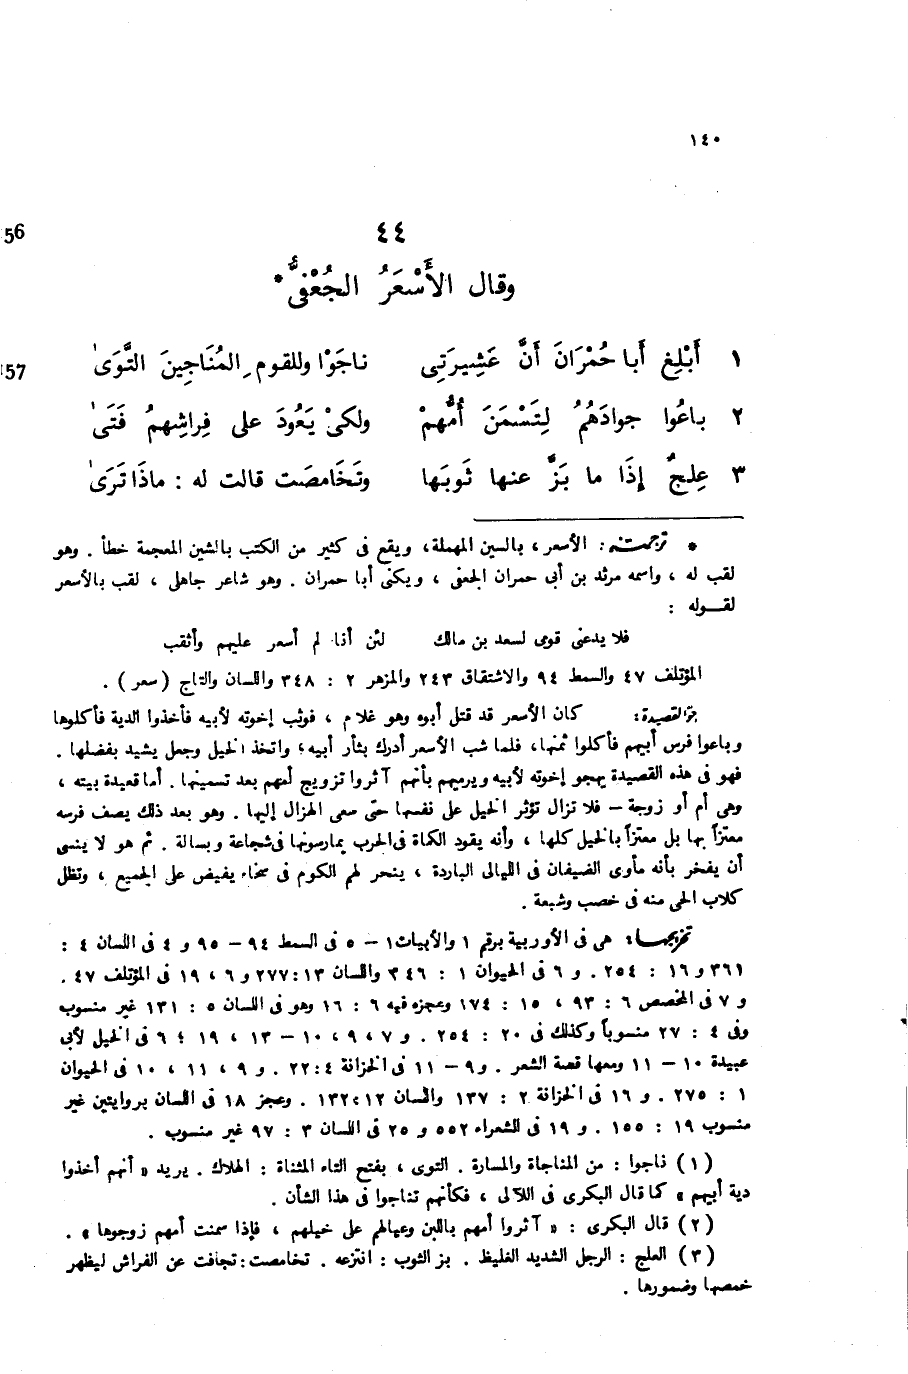 ١٤٠
56
٤٤
وقال الأَسْعَرُ الجُعْفىُّ *
157
١ أَبْلِغ أَبا حُمْرَانَ أَنَّ عَشِيرَتِى ناجَوْا وللقوم المُنَاجِينَ التَّوَىٰ
٢ باعُوا جوادَهُمُ لِتَسْمَنَ أُمُّهمْ ولكىْ يَعُودَ على فِراشِهمُ فَتَىٰ
٣ عِلجٌ إِذَا ما بَزَّ عنها ثَوبَها وتَخَامصَت قالت له : ماذَا تَرَىٰ
* ترجمته : الأسعر ، بالسين المهملة ، ويقع فى كثير من الكتب بالشين المعجمة خطأ . وهو
لقب له ، واسمه مرثد بن أبى حمران الجعفى ، ويكنى أبا حمران . وهو شاعر جاهلى ، لقب بالأسعر
لقــوله :
فلا يدعنى قومى لسعد بن مالك لئن أنا لم أسعر عليهم وأثقب
المؤتلف ٤٧ والسمط ٩٤ والاشتقاق ٢٤٣ والمزهر ٢ : ٣٤٨ واللسان والتاج ( سعر ) .
جو القصيدة : كان الأسعر قد قتل أبوه وهو غلام ، فوثب إخوته لأبيه فأخذوا الدية فأكلوها
وباعوا فرس أبيهم فأكلوا ثمنها ، فلما شب الأسعر أدرك بثأر أبيه ؛ واتخذ الخيل وجعل يشيد بفضلها .
فهو فى هذه القصيدة يهجو إخوته لأبيه ويرميهم بأنهم آثروا تزويج أمهم بعد تسمينها . أما قعيدة بيته ،
وهى أم أو زوجة – فلا تزال تؤثر الخيل على نفسها حتى سعى الهزال إليها . وهو بعد ذلك يصف فرسه
معتزاً بها بل معتزاً بالخيل كلها ، وأنه يقود الكماة فى الحرب يمارسونها فى شجاعة وبسالة . ثم هو لا ينسى
أن يفخر بأنه مأوى الضيفان فى الليالى الباردة ، ينحر لهم الكوم فى سخاء يفيض على الجميع ، وتظل
كلاب الحى منه فى خصب وشبعة .
تخريجهـا : هى فى الأوربية برقم ١ والأبيات ١ – ٥ فى السمط ٩٤ – ٩٥ و ٤ فى اللسان ٤ :
٣٦١ و ١٦ : ٢٥٤ . و ٦ فى الحيوان ١ : ٣٤٦ واللسان ١٣ : ٢٧٧ و ٦ ، ١٩ فى المؤتلف ٤٧ .
و ٧ فى المخصص ٦ : ٩٣ ، ١٥ : ١٧٤ وعجزه فيه ٦ : ١٦ وهو فى اللسان ٥ : ١٣١ غير منسوب
وفى ٤ : ٢٧ منسوباً وكذلك فى ٢٠ : ٢٥٤ . و ٧ ، ٩ ، ١٠ – ١٣ ، ١٩ ؛ ٦ فى الخيل لأبى
عبيدة ١٠ – ١١ ومعها قصة الشعر . و ٩ – ١١ فى الخزانة ٤ : ٢٢ . و ٩ ، ١١ ، ١٠ فى الحيوان
١ : ٢٧٥ . و ١٦ فى الخزانة ٢ : ١٣٧ واللسان ١٢ : ١٣٢ . وعجز ١٨ فى اللسان بروايتين غير
منسوب ١٩ : ١٥٥ . و ١٩ فى الشعراء ٥٥٢ و ٢٥ فى اللسان ٣ : ٩٧ غير منسوب .
( ١ ) ناجوا : من المناجاة والمسارة . التوى ، بفتح التاء المثناة : الهلاك . يريد « أنهم أخذوا
دية أبيهم » كما قال البكرى فى اللآلى ، فكأنهم تناجوا فى هذا الشأن .
( ٢ ) قال البكرى : « آثروا أمهم باللبن وعيالهم على خيلهم ، فإذا سمنت أمهم زوجوها » .
( ٣ ) العلج : الرجل الشديد الغليظ . بز الثوب : انتزعه . تخامصت : تجافت عن الفراش ليظهر
خمصها وضمورها .